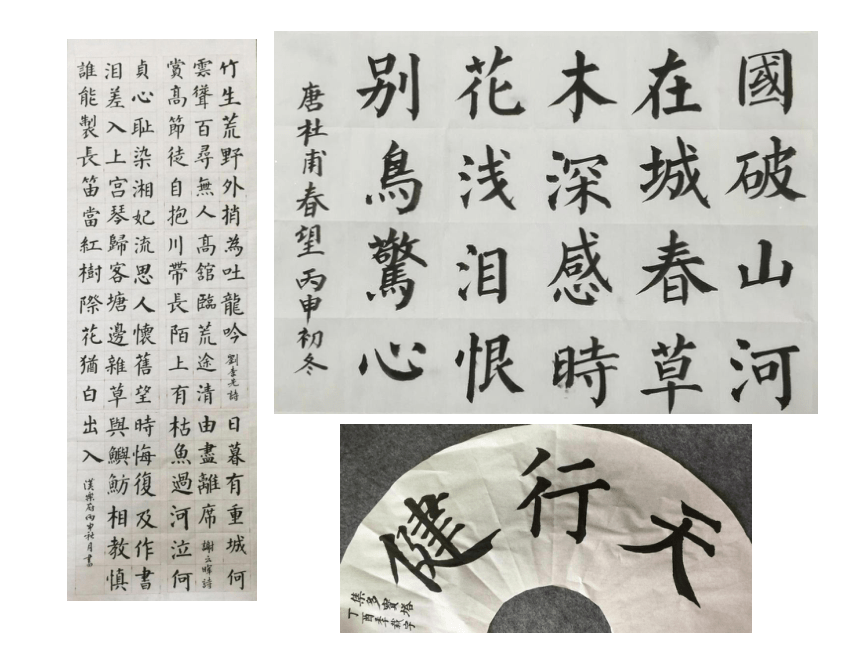 竹生荒野外捎為吐龍吟 劉孝先詩 日暮有重城何
雲聳百尋無人高舘臨荒途清由盡離席 謝玄暉詩
賞高節徒自抱川帶長陌上有枯魚過河泣何
貞心耻染湘妃流思人懷舊望時悔復及作書
泪差入上宮琴歸客塘邊雜草與鱮魴相教慎
誰能製長笛當紅樹際花猶白出入 漢樂府丙申社月書
國破山河
在城春草
木深感時
花浅泪恨
别鳥驚心
唐杜甫春望丙申初冬
天行健
集多寶塔
丁酉